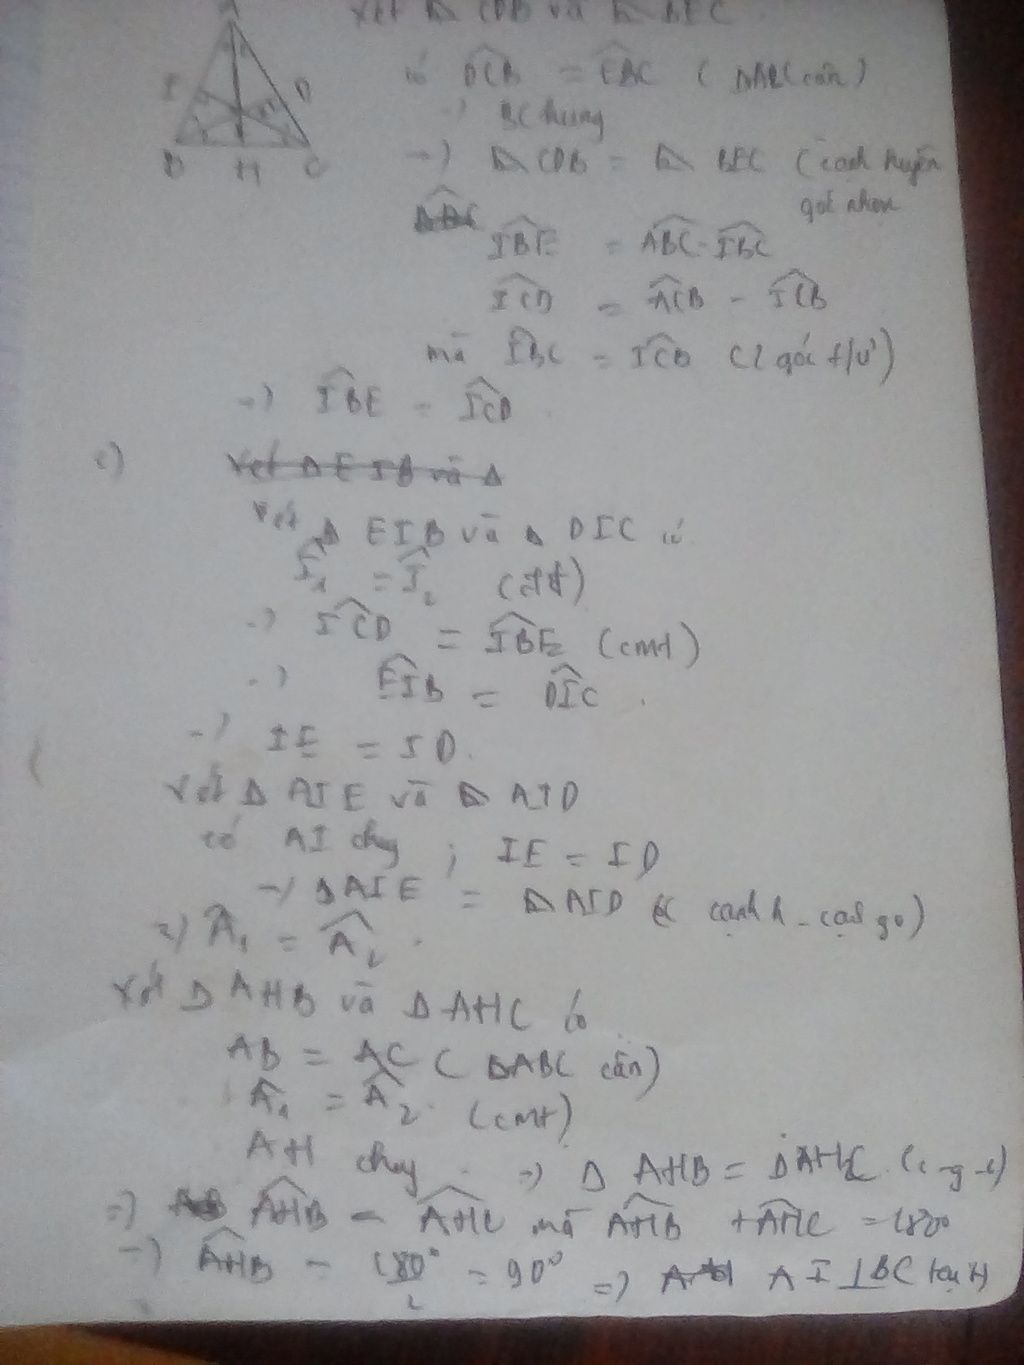 A
E D
B H C
Xét Δ CDB và Δ BEC
có DCB = EBC (ΔABC cân)
=) BC chung
=) Δ CDB = Δ BEC (cạnh huyền
góc nhọn
IBE = ABC - IBC
ICD = ACB - ICB
mà IBC = ICB (2 góc t/ư)
=) IBE = ICD
c) Xét Δ EIB và Δ
Xét Δ EIB và Δ DIC có
I1 = I2 (đđ)
=) ICD = IBE (cmt)
=) EIB = DIC.
=) IE = ID.
Xét Δ AIE và Δ AID
có AI chug ; IE = ID
=) ΔAIE = ΔAID (cạnh h - cạh go)
=) A1 = A2.
Xét Δ AHB và Δ AHC có
AB = AC (ΔABC cân)
A1 = A2. (cmt)
AH chug =) Δ AHB = ΔAHC. (c-g-c)
=) AHB = AHC mà AHB + AHC = 180
=) AHB = 180°/2 = 90° =) AI ⊥ BC tại H